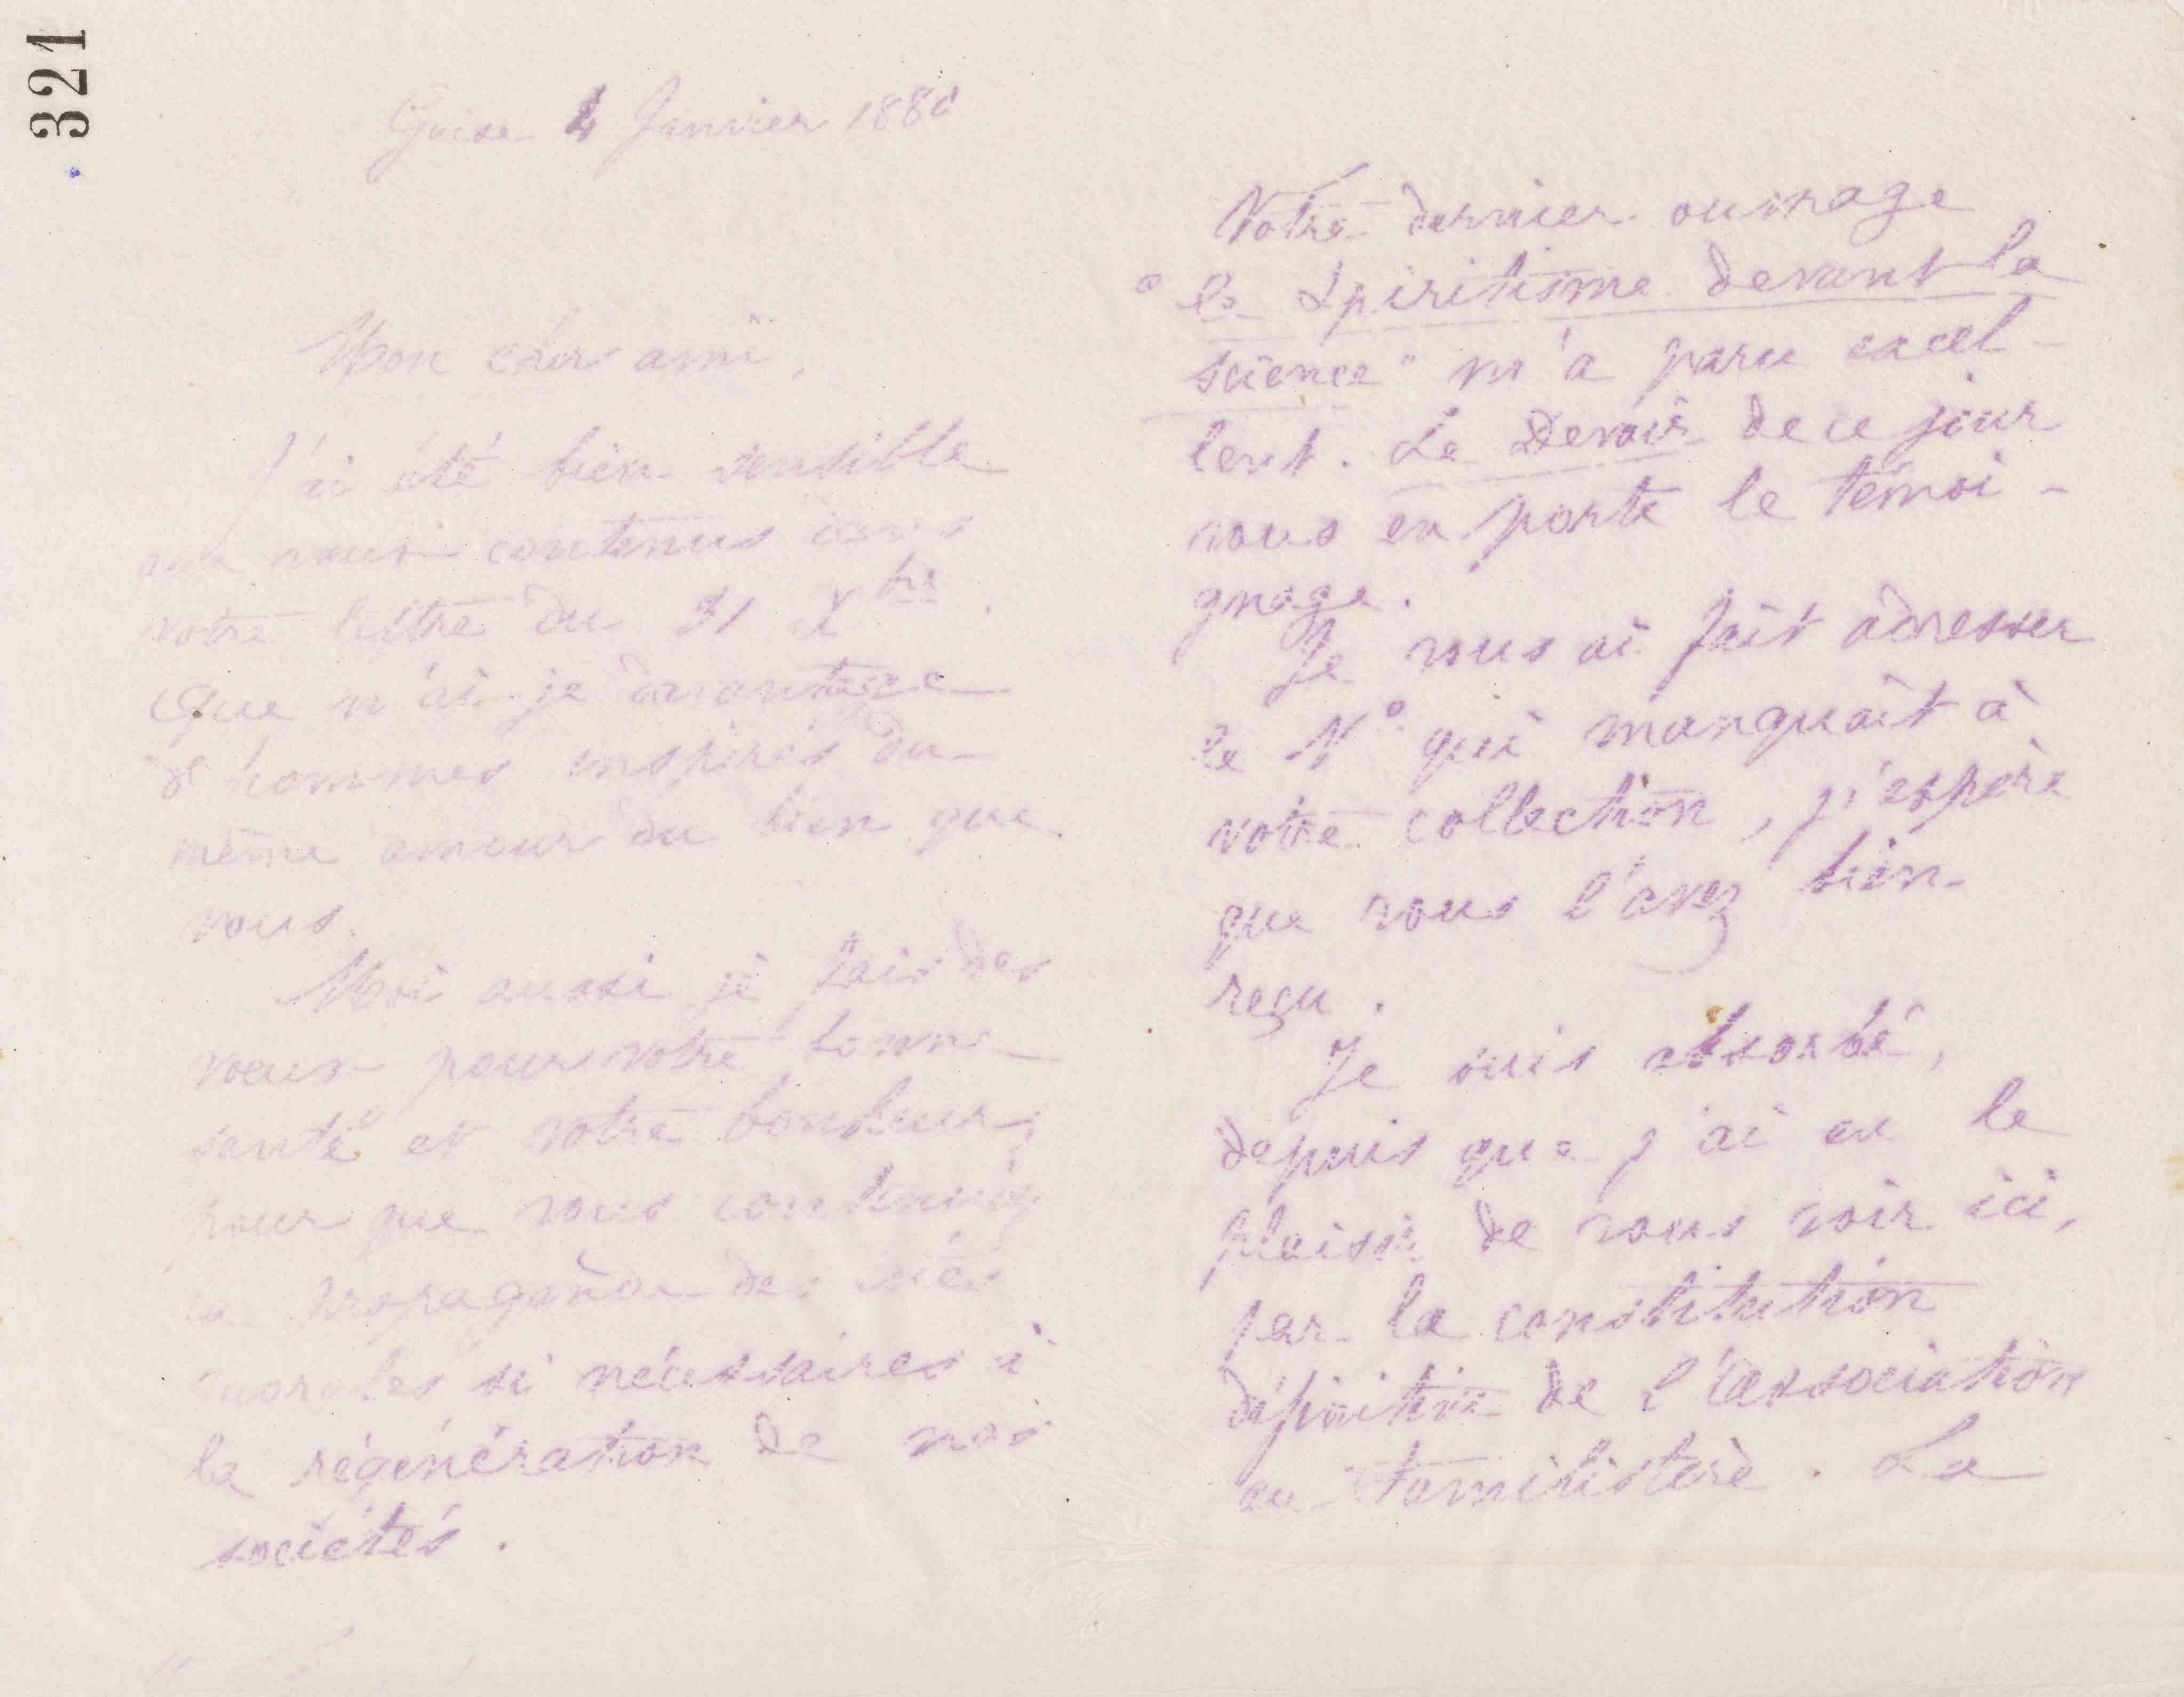 321
Guise 4 Janvier 1880
Mon cher ami,
J'ai été bien sensible
aux vœux contenus dans
votre lettre du 31 Xbre.
Que n'ai-je davantage
d'hommes inspirés du
même amour du bien que
vous.
Moi aussi je fais des
vœux pour votre bonne
santé et votre bonheur,
pour que vous continuiez
la propagande des idées
morales si nécessaires à
la régénération de nos
sociétés.
Votre dernier ouvrage
"le Spiritisme devant la
science" m'a paru excel-
lent. Le Devoir de ce jour
vous en porte le témoi-
gnage.
Je vous ai fait adresser
le N° qui manquait à
votre collection, j'espère
que vous l'avez bien
reçu.
Je suis absorbé,
depuis que j'ai eu le
plaisir de vous voir ici,
par la constitution
définitive de l'association
au Familistère. La